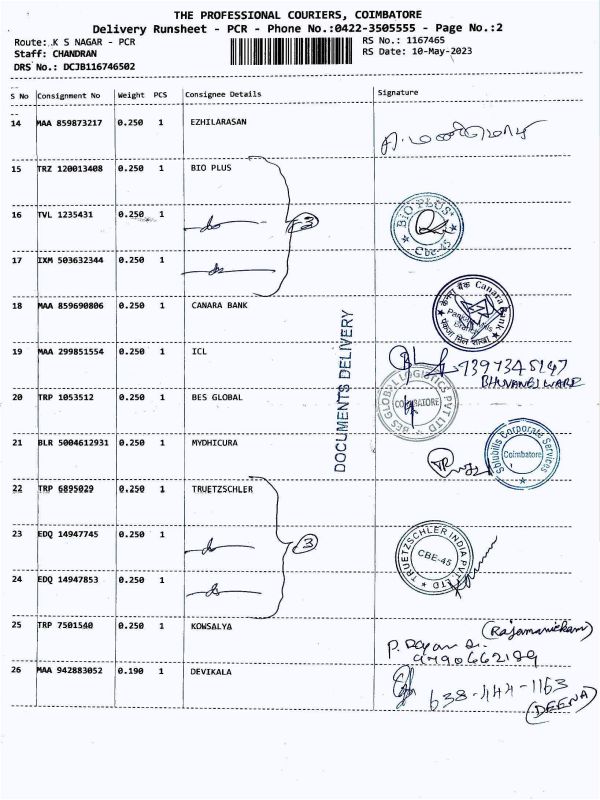 THE PROFESSIONAL COURIERS, COIMBATORE
Delivery Runsheet - PCR - Phone No.:0422-3505555 - Page No.:2
Route: K S NAGAR - PCR
RS No.: 1167465
Staff: CHANDRAN
RS Date: 10-May-2023
DRS No.: DCJB116746502
S No Consignment No Weight PCS Consignee Details Signature
14 MAA 859873217 0.250 1 EZHILARASAN
15 TRZ 120013408 0.250 1 BIO PLUS
16 TVL 1235431 0.250 1 do 3
BIO PLUS Cbe-45
17 IXM 503632344 0.250 1 do
18 MAA 859690806 0.250 1 CANARA BANK
Canara Bank
19 MAA 299851554 0.250 1 ICL
7397345147
BHUVANESWARE
20 TRP 1053512 0.250 1 BES GLOBAL
BES GLOBAL LOGISTICS PVT LTD COIMBATORE
DOCUMENTS DELIVERY
21 BLR 5004612931 0.250 1 MYDHICURA
Corporate Services Coimbatore
22 TRP 6895029 0.250 1 TRUETZSCHLER
23 EDQ 14947745 0.250 1 do 3
TRUETZSCHLER INDIA PVT LTD CBE-45
24 EDQ 14947853 0.250 1 do
25 TRP 7501540 0.250 1 KOWSALYA
(Rajamanickam)
9790662189
26 MAA 942883052 0.190 1 DEVIKALA
638-444-1163
(DEENA)